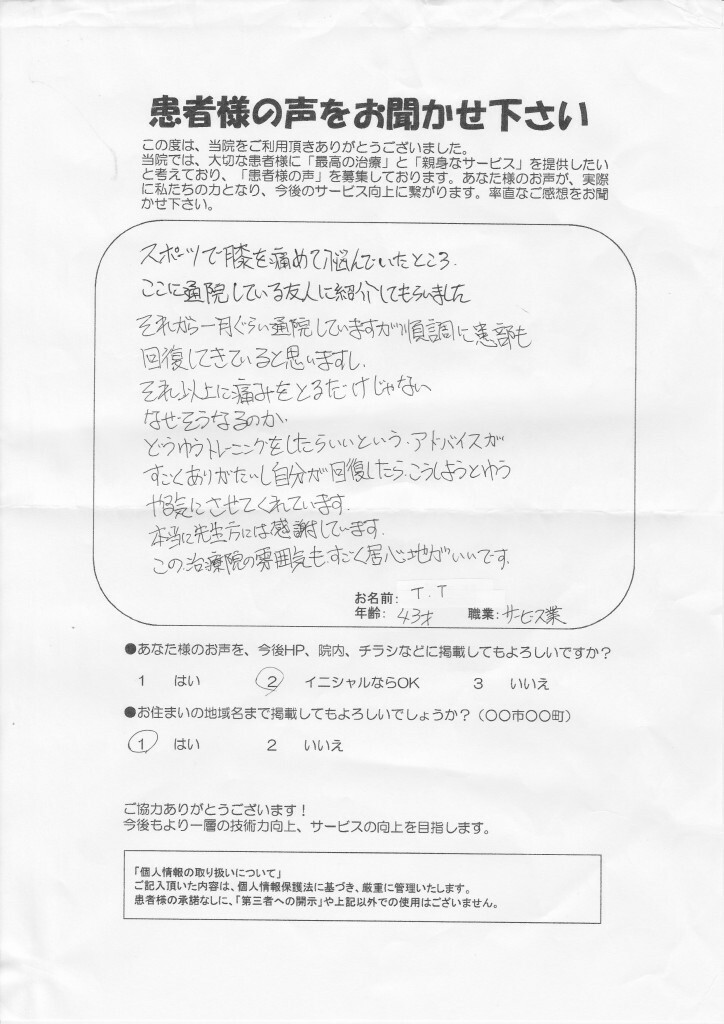 患者様の声をお聞かせ下さい
この度は、当院をご利用頂きありがとうございました。
当院では、大切な患者様に「最高の治療」と「親身なサービス」を提供したい
と考えており、「患者様の声」を募集しております。あなた様のお声が、実際
に私たちの力となり、今後のサービス向上に繋がります。率直なご感想をお聞
かせ下さい。
スポーツで膝を痛めて悩んでいたところ.
ここに通院している友人に紹介してもらいました
それから一月ぐらい通院していますが順調に患部も
回復してきていると思いますし.
それ以上に痛みをとるだけじゃない
なぜそうなるのか.
どうゆうトレーニングをしたらいいという.アドバイスが
すごくありがたいし自分が回復したら.こうしようとゆう
やる気にさせてくれています.
本当に先生方には感謝しています.
この治療院の雰囲気も.すごく居心地がいいです.
お名前: T.T
年齢: 43才 職業: サービス業
●あなた様のお声を、今後HP、院内、チラシなどに掲載してもよろしいですか？
1 はい ② イニシャルならOK 3 いいえ
●お住まいの地域名まで掲載してもよろしいでしょうか？（〇〇市〇〇町）
① はい 2 いいえ
ご協力ありがとうございます！
今後もより一層の技術力向上、サービスの向上を目指します。
「個人情報の取り扱いについて」
ご記入頂いた内容は、個人情報保護法に基づき、厳重に管理いたします。
患者様の承諾なしに、「第三者への開示」や上記以外での使用はございません。